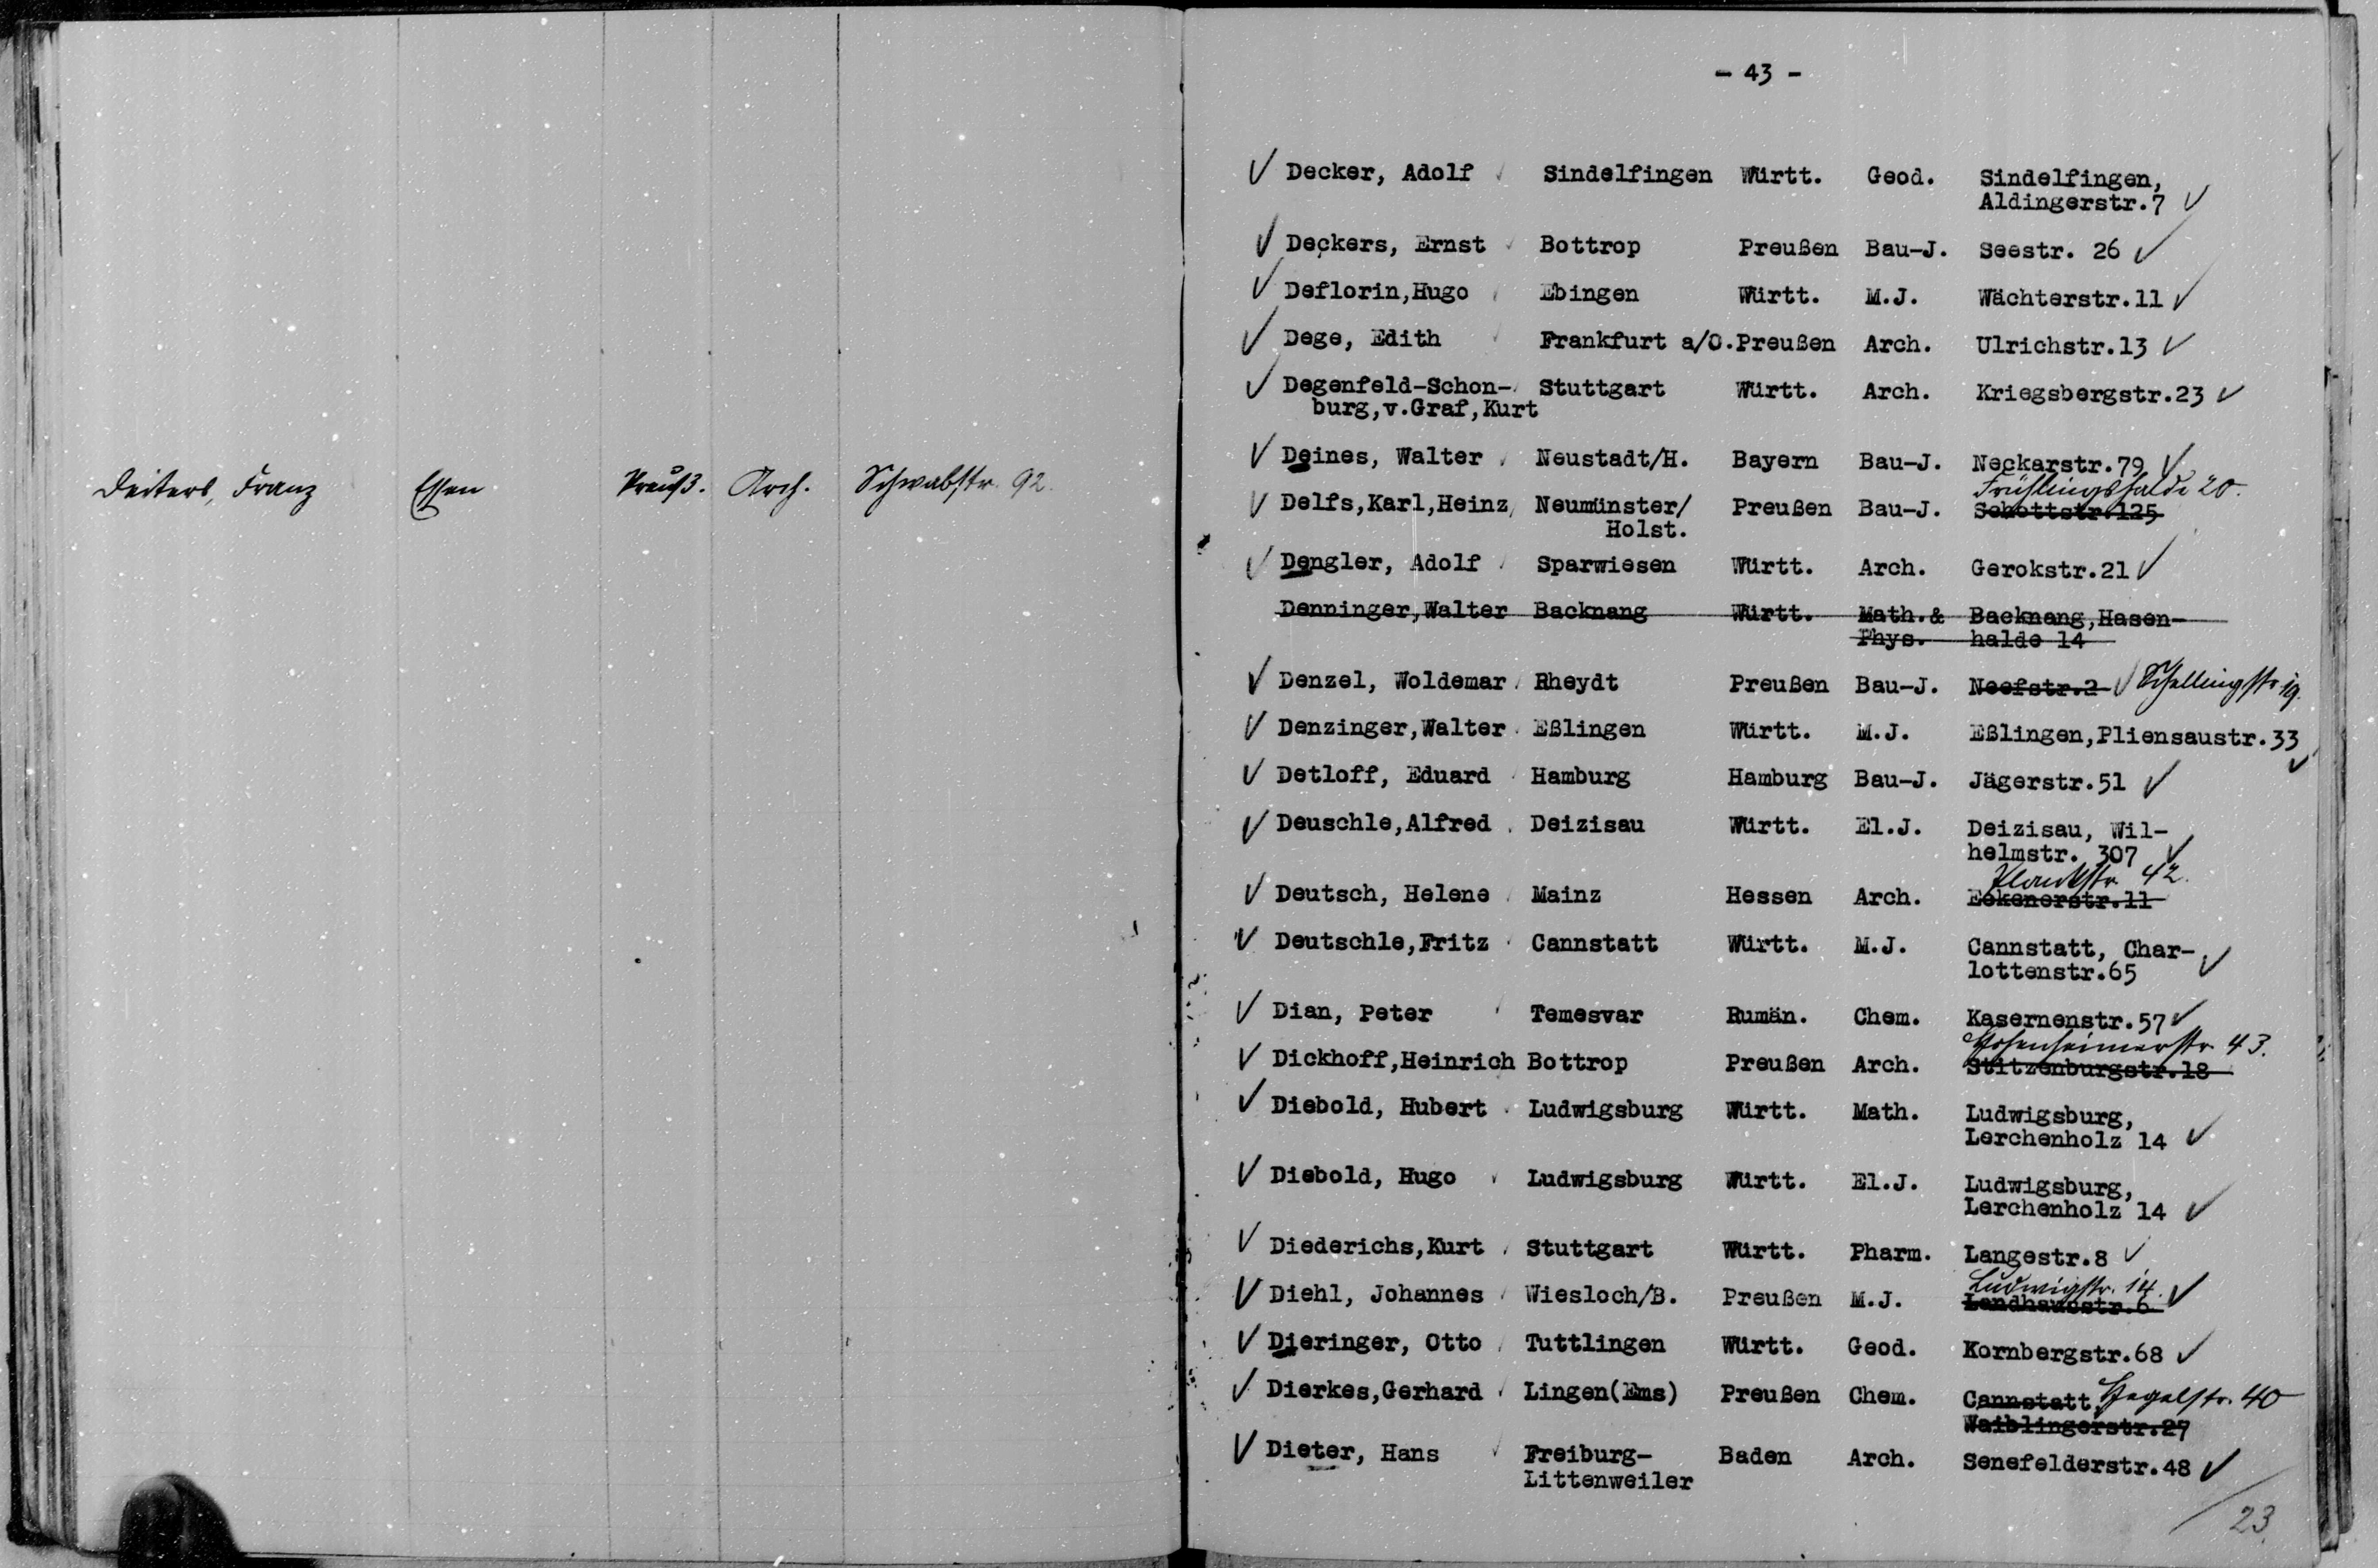 Deiters, Franz Essen Preuß. Arch. Schwabstr. 92.
- 43 -
Decker, Adolf Sindelfingen Württ. Geod. Sindelfingen,
Aldingerstr.7
Deckers, Ernst Bottrop Preußen Bau-J. Seestr. 26
Deflorin,Hugo Ebingen Württ. M.J. Wächterstr.11
Dege, Edith Frankfurt a/O. Preußen Arch. Ulrichstr.13
Degenfeld-Schon- Stuttgart Württ. Arch. Kriegsbergstr.23
burg,v.Graf,Kurt
Deines, Walter Neustadt/H. Bayern Bau-J. Neckarstr.79
Frühlingshalde 20.
Delfs,Karl,Heinz Neumünster/ Preußen Bau-J. Schottstr.125
Holst.
Dengler, Adolf Sparwiesen Württ. Arch. Gerokstr.21
Denninger,Walter Backnang Württ. Math.& Backnang,Hasen-
Phys. halde 14
Denzel, Woldemar Rheydt Preußen Bau-J. Neefstr.2 Schellingstr. 19.
Denzinger,Walter Eßlingen Württ. M.J. Eßlingen,Pliensaustr.33
Detloff, Eduard Hamburg Hamburg Bau-J. Jägerstr.51
Deuschle,Alfred Deizisau Württ. El.J. Deizisau, Wil-
helmstr. 307
42.
Deutsch, Helene Mainz Hessen Arch. Eckenerstr.11
Deutschle,Fritz Cannstatt Württ. M.J. Cannstatt, Char-
lottenstr.65
Dian, Peter Temesvar Rumän. Chem. Kasernenstr.57
Hohenheimerstr. 43.
Dickhoff,Heinrich Bottrop Preußen Arch. Stitzenburgstr.18
Diebold, Hubert Ludwigsburg Württ. Math. Ludwigsburg,
Lerchenholz 14
Diebold, Hugo Ludwigsburg Württ. El.J. Ludwigsburg,
Lerchenholz 14
Diederichs,Kurt Stuttgart Württ. Pharm. Langestr.8
Ludwigstr. 14.
Diehl, Johannes Wiesloch/B. Preußen M.J. Landhausstr.6
Dieringer, Otto Tuttlingen Württ. Geod. Kornbergstr.68
Dierkes,Gerhard Lingen(Ems) Preußen Chem. Cannstatt, Hegelstr. 40
Waiblingerstr.27
Dieter, Hans Freiburg- Baden Arch. Senefelderstr.48
Littenweiler
23